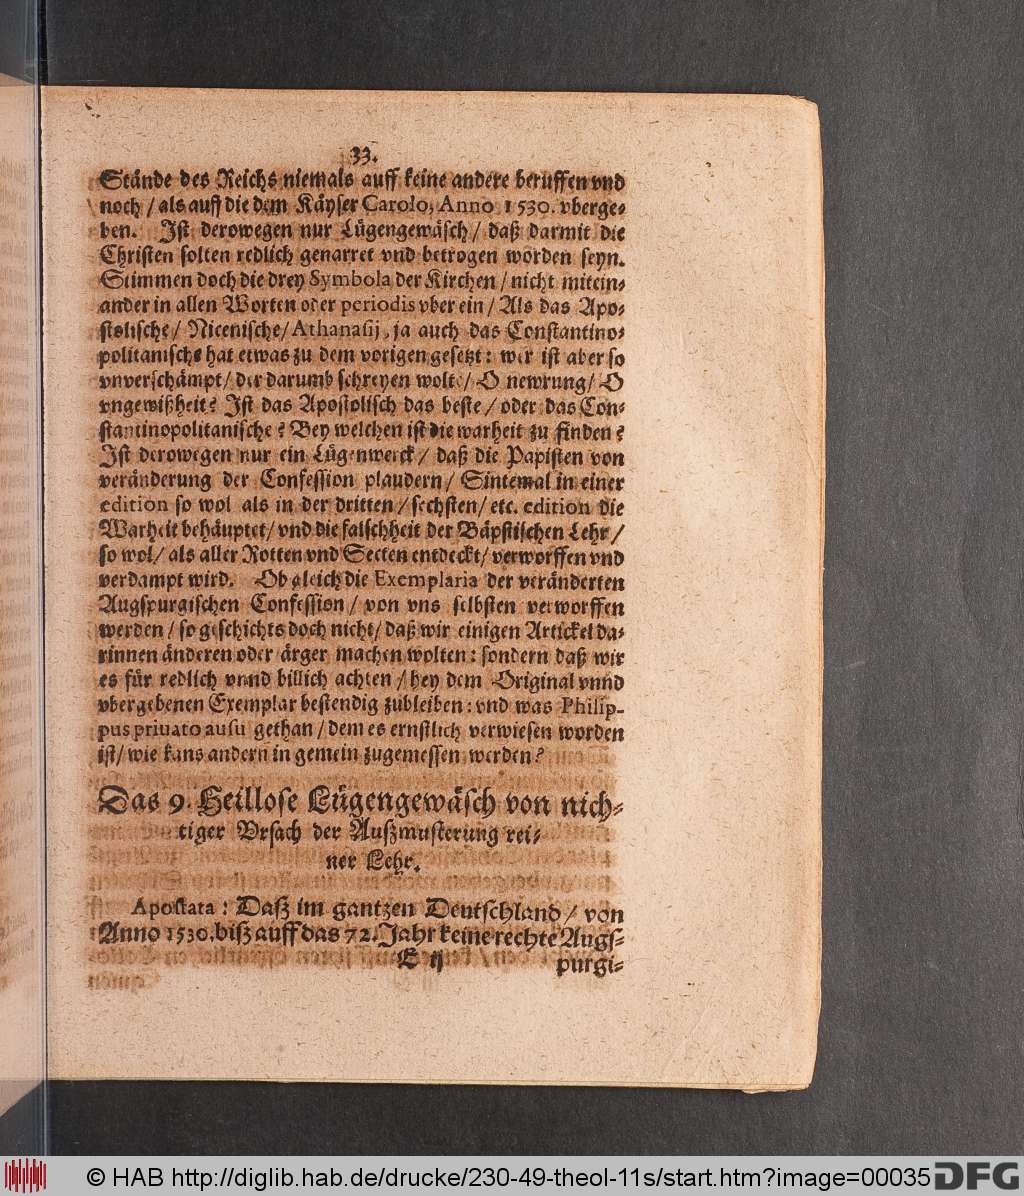 33.
Stände des Reichs niemals auff keine andere beruffen vnd
noch / als auff die dem Käyser Carolo, Anno 1530. vberge⸗
ben. Ist derowegen nur Lügengewäsch / daß darmit die
Christen solten redlich genarret vnd betrogen worden seyn.
Stimmen doch die drey Symbola der Kirchen / nicht mitein⸗
ander in allen Worten oder periodis vber ein / Als das Apo⸗
stolische / Nicenische / Athanasij, ja auch das Constantino⸗
politanische hat etwas zu dem vorigen gesetzt: wer ist aber so
vnverschämpt / der darumb schreyen wolte / O newrung / O
vngewißheit? Ist das Apostolisch das beste / oder das Con⸗
stantinopolitanische? Bey welchen ist die warheit zu finden?
Ist derowegen nur ein Lügenwerck / daß die Papisten von
veränderung der Confession plaudern / Sintemal in einer
edition so wol als in der dritten / sechsten / etc. edition die
Warheit behäuptet / vnd die falschheit der Bäpstischen Lehr /
so wol / als aller Rotten vnd Secten entdeckt / verworffen vnd
verdampt wird. Ob gleich die Exemplaria der veränderten
Augspurgischen Confession / von vns selbsten verworffen
werden / so geschichts doch nicht / daß wir einigen Artickel da⸗
rinnen änderen oder ärger machen wolten: sondern daß wir
es für redlich vnnd billich achten / bey dem Original vnnd
vbergebenen Exemplar bestendig zubleiben: vnd was Philip-
pus priuato ausu gethan / dem es ernstlich verwiesen worden
ist / wie kans andern in gemein zugemessen werden?
Das 9. Heillose Lügengewäsch von nich⸗
tiger Vrsach der Außmusterung rei⸗
ner Lehr.
Apostata: Daß im gantzen Deutschland / von
Anno 1530. biß auff das 72. Jahr keine rechte Augs⸗
E ij purgi⸗
© HAB http://diglib.hab.de/drucke/230-49-theol-11s/start.htm?image=00035 DFG